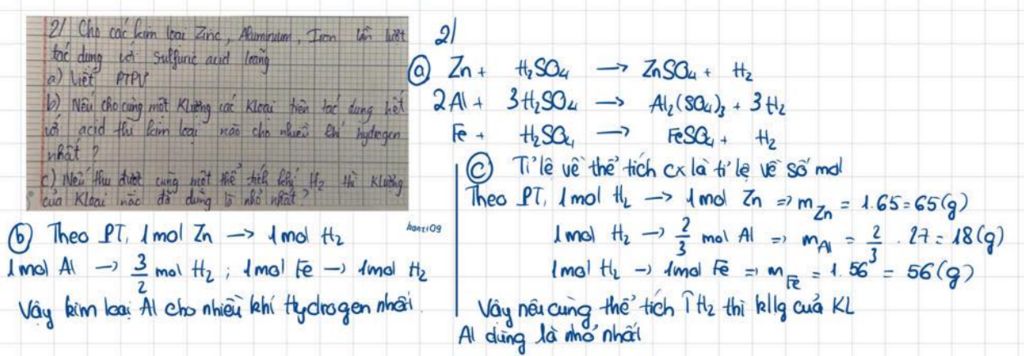 2/ Cho các kim loại Zinc, Aluminum, Iron lần lượt
tác dụng với sulfuric acid loãng
a) Viết PTPƯ
b) Nếu cho cùng một Klượng các Kloại trên tác dụng hết
với acid thì kim loại nào cho nhiều khí hydrogen
nhất?
c) Nếu thu được cùng một thể tích khí H₂ thì Klượng
của Kloại nào đã dùng là nhỏ nhất?
2/
a Zn + H₂SO₄ → ZnSO₄ + H₂
2Al + 3H₂SO₄ → Al₂(SO₄)₃ + 3H₂
Fe + H₂SO₄ → FeSO₄ + H₂
b Theo PT, 1mol Zn → 1mol H₂
1mol Al → 3/2 mol H₂; 1mol Fe → 1mol H₂
Vậy kim loại Al cho nhiều khí Hydrogen nhất.
c Tỉ lệ về thể tích cx là tỉ lệ về số mol
Theo PT, 1mol H₂ → 1mol Zn => m Zn = 1.65=65(g)
1mol H₂ → 2/3 mol Al => m Al = 2/3 . 27 = 18(g)
1mol H₂ → 1mol Fe => m Fe = 1.56 = 56(g)
Vậy nếu cùng thể tích ↑H₂ thì kllg của KL
Al dùng là nhỏ nhất